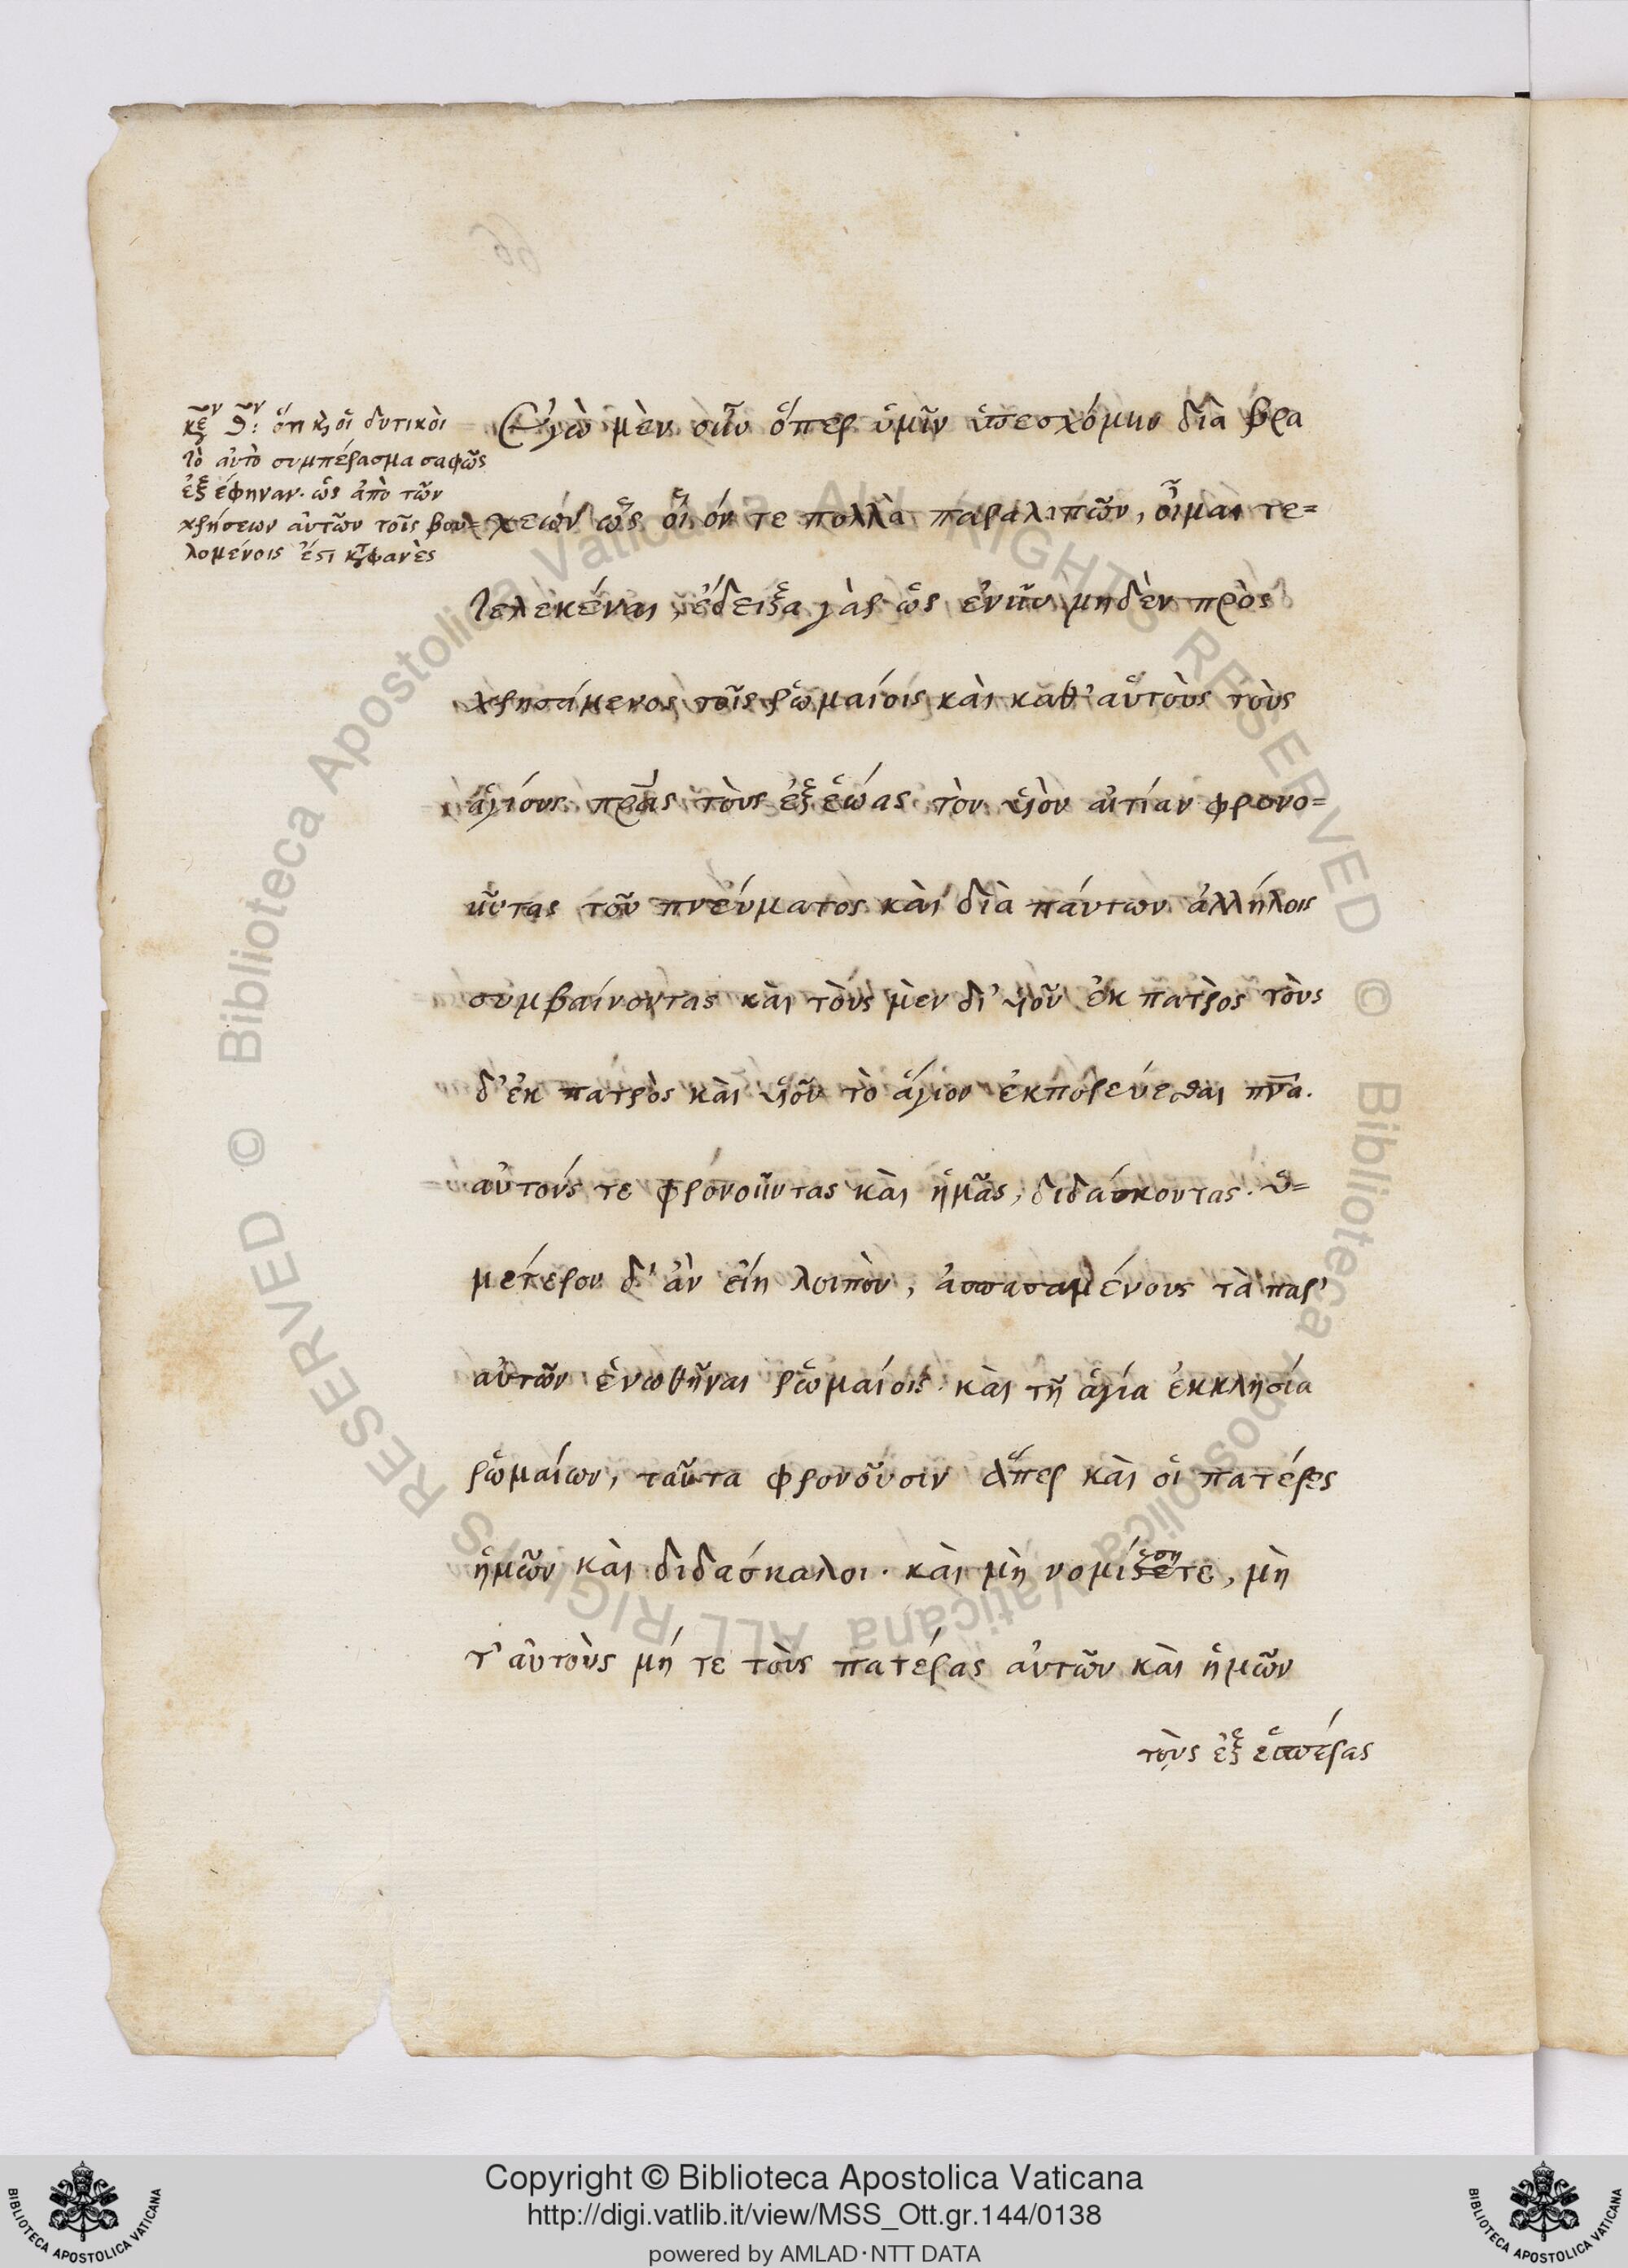 ὅτι κ οἱ δυτικοὶ
τὸ αὐτὸ συμπέρασμα σαφῶς
ἐξ έφηναν. ὡς ἀπὸ τῶν
χρήσεων ἀυτῶν τοῖς βου=
λομένοις ἐστι κφανὲς
Εγὼ μὲν οὖν ὅπερ ὑμῖν ὑπεσχόμην διὰ βρα
χεων ὡς οἷ όν τε πολλὰ παραλιπῶν, οἶμαι τε=
τελεκέναι, έδειξα γὰρ ὡς ἐνῆν μηδὲν πρὸς
χρησάμενος τοῖς ῥωμαίοις κὰι καθ' αὑτοὺς τοὺς
ἁγίους πρας τοὺς ἐξ ἑώας τὸν υἱὸν ἀιτίαν φρονο=
ῦντας τοῦ πνέυματος κὰι διὰ πάντων ἀλλήλοις
συμβαίνοντας κὰι τοὺς μὲν δι' υἱοῦ ἐκ πατρὸς τοὺς
δ' ἐκ πατρὸς κὰι υἱοῦ τὸ ἅγιον ἐκπορέυεσθαι πνα.
αὐτούς τε φρονοῦντας κὰι ἡμᾶς, διδάσκοντας. ὑ=
μέτερον δ' ἀν εἴη λοιπὸν, ἀσπασαμένους τὰ παρ'
αὐτῶν ἑνωθῆναι ῥωμαίοις. κὰι τῆ ἁγία ἐκκλησία
ῥωμαίων, ταῦτα φρονοῦσιν ἅπερ κὰι οἱ πατέρες
ἡμῶν κὰι διδασκαλοι. κὰι μὴ νομίσητε, μὴ
τ' αὐτοὺς μή τε τοὺς πατέρας αὐτῶν κὰι ἡμῶν
τοὺς ἐξ ἑσπέρας
66
© Biblioteca Apostolica Vaticana ALL RIGHTS RESERVED © Biblioteca Apostolica Vaticana ALL RIGHTS RESERVED
Copyright © Biblioteca Apostolica Vaticana
http://digi.vatlib.it/view/MSS_Ott.gr.144/0138
powered by AMLAD·NTT DATA
BIBLIOTECA APOSTOLICA VATICANA
BIBLIOTECA APOSTOLICA VATICANA